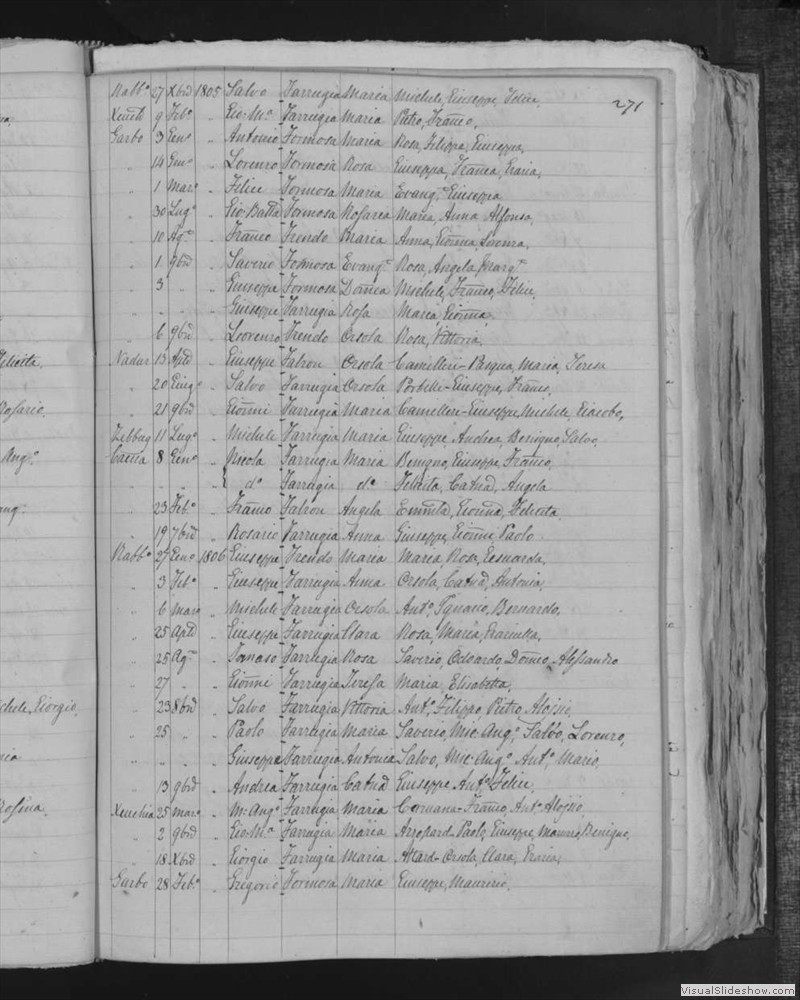 271
Rabb.o 27 Xbre 1805 Salvo Farrugia Maria Michele, Giuseppe, Felice,
9 Feb.o „ Gio M.a Farrugia Maria Pietro, Franco,
Garbo 3 Gen.o „ Antonio Formosa Maria Rosa, Filippa, Giuseppa,
„ 14 Gen.o „ Lorenzo Formosa Rosa Giuseppa, Franca, Grazia,
„ 1 Marzo „ Felice Formosa Maria Evang.a Giuseppa
„ 30 Lug.o „ Gio Batta Formosa Rosaria Maria, Anna Alfonsa,
„ 10 Ag.o „ Franco Frendo Maria Anna, Gionna, Lorenza,
„ 1 9bre „ Saverio Formosa Evang.a Rosa, Angela, Marg.a
„ 3 „ „ Giuseppe Formosa Domca Michele, Franco, Felice,
„ „ „ „ Giuseppe Farrugia Rosa Maria Gionna
„ 6 9bre „ Lorenzo Frendo Orsola Rosa, Vittoria,
Nadur 13 Aple „ Giuseppe Falzon Orsola Camilleri-Pasqua, Maria, Teresa
„ 20 Giug.o „ Salvo Farrugia Orsola Portelli-Giuseppe, Franco,
„ 21 9bre „ Gionni Farrugia Maria Camilleri-Giuseppe, Michele, Giacobo,
Zebbug 11 Lug.o „ Michele Farrugia Maria Giuseppe, Andrea, Benigno, Salvo,
Caccia 8 Gen.o „ Nicola Farrugia Maria Benigno, Giuseppe, Franco,
„ „ „ { d.o Farrugia d.o Felicita, Catna, Angela
„ 23 Feb.o „ Franco Falzon Angela Gionna, Felicita
„ 19 7bre „ Rosario Farrugia Anna Giuseppe, Gionni, Paolo
Rabb.o 27 Gen.o 1806 Giuseppe Frendo Maria Maria, Rosa, Gesuarda,
„ 3 Feb.o „ Giuseppe Farrugia Anna Orsola, Catna, Antonia,
„ 6 Marzo „ Michele Farrugia Orsola Ant.o Ignazio, Bernardo,
„ 25 Aple „ Giuseppe Farrugia Clara Rosa, Maria, Graziulla,
„ 25 Ag.o „ Tomaso Farrugia Rosa Saverio, Odoardo, Domco, Alessandro
„ 27 „ „ Gionni Farrugia Teresa Maria Elisabetta,
„ 23 8bre „ Salvo Farrugia Vittoria Ant.o Filippo, Pietro Aloisio,
„ 25 „ „ Paolo Farrugia Maria Saverio, Mic-Ang.o Salvo, Lorenzo,
„ „ „ „ Giuseppe Farrugia Antonia Salvo, Mic-Ang.o Ant.o Mario,
„ 13 9bre „ Andrea Farrugia Catna Giuseppe, Ant.o Felice,
Xeuchia 25 Marzo „ M. Ang.o Farrugia Maria Caruana-Franco, Ant.o Aloisio,
„ 2 9bre „ Gio M.a Farrugia Maria Azzopard-Paolo, Giuseppe, Maurizio, Benigno,
„ 18 Xbre „ Giorgio Farrugia Maria Attard-Orsola, Clara, Grazia,
Garbo 28 Feb.o „ Gregorio Formosa Maria Giuseppe, Maurizio,
Felicita,
Rosario,
Ang.o
Michele, Giorgio,
Rosina,
VisualSlideshow.com